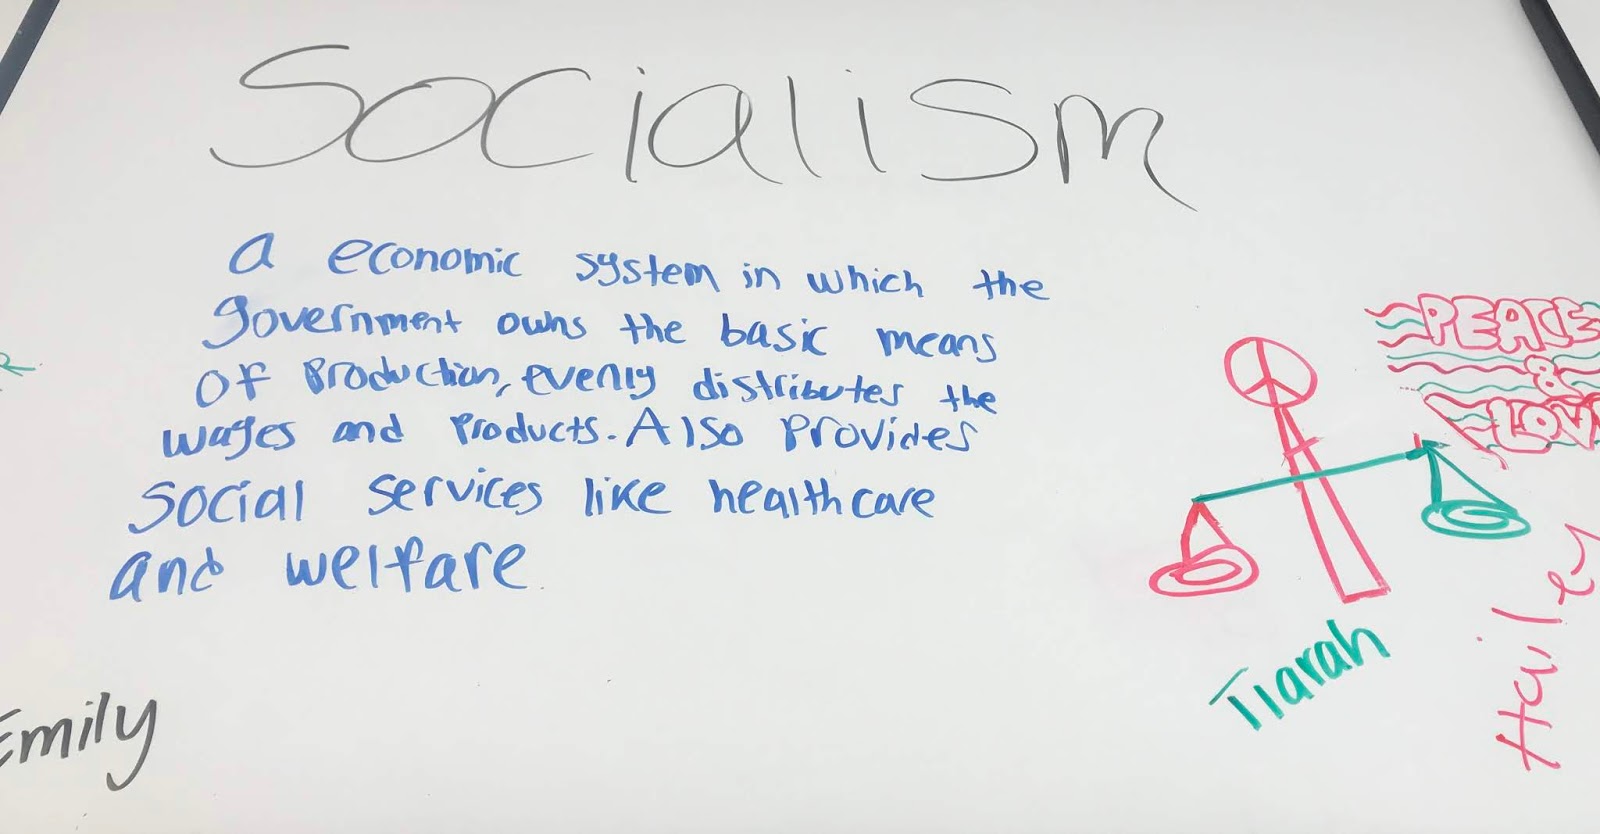 Socialism
a economic system in which the
government owns the basic means
of production, evenly distributes the
wages and products. Also provides
social services like healthcare
and welfare
PEACE
&
LOVE
Tiarah
Hailey
Emily